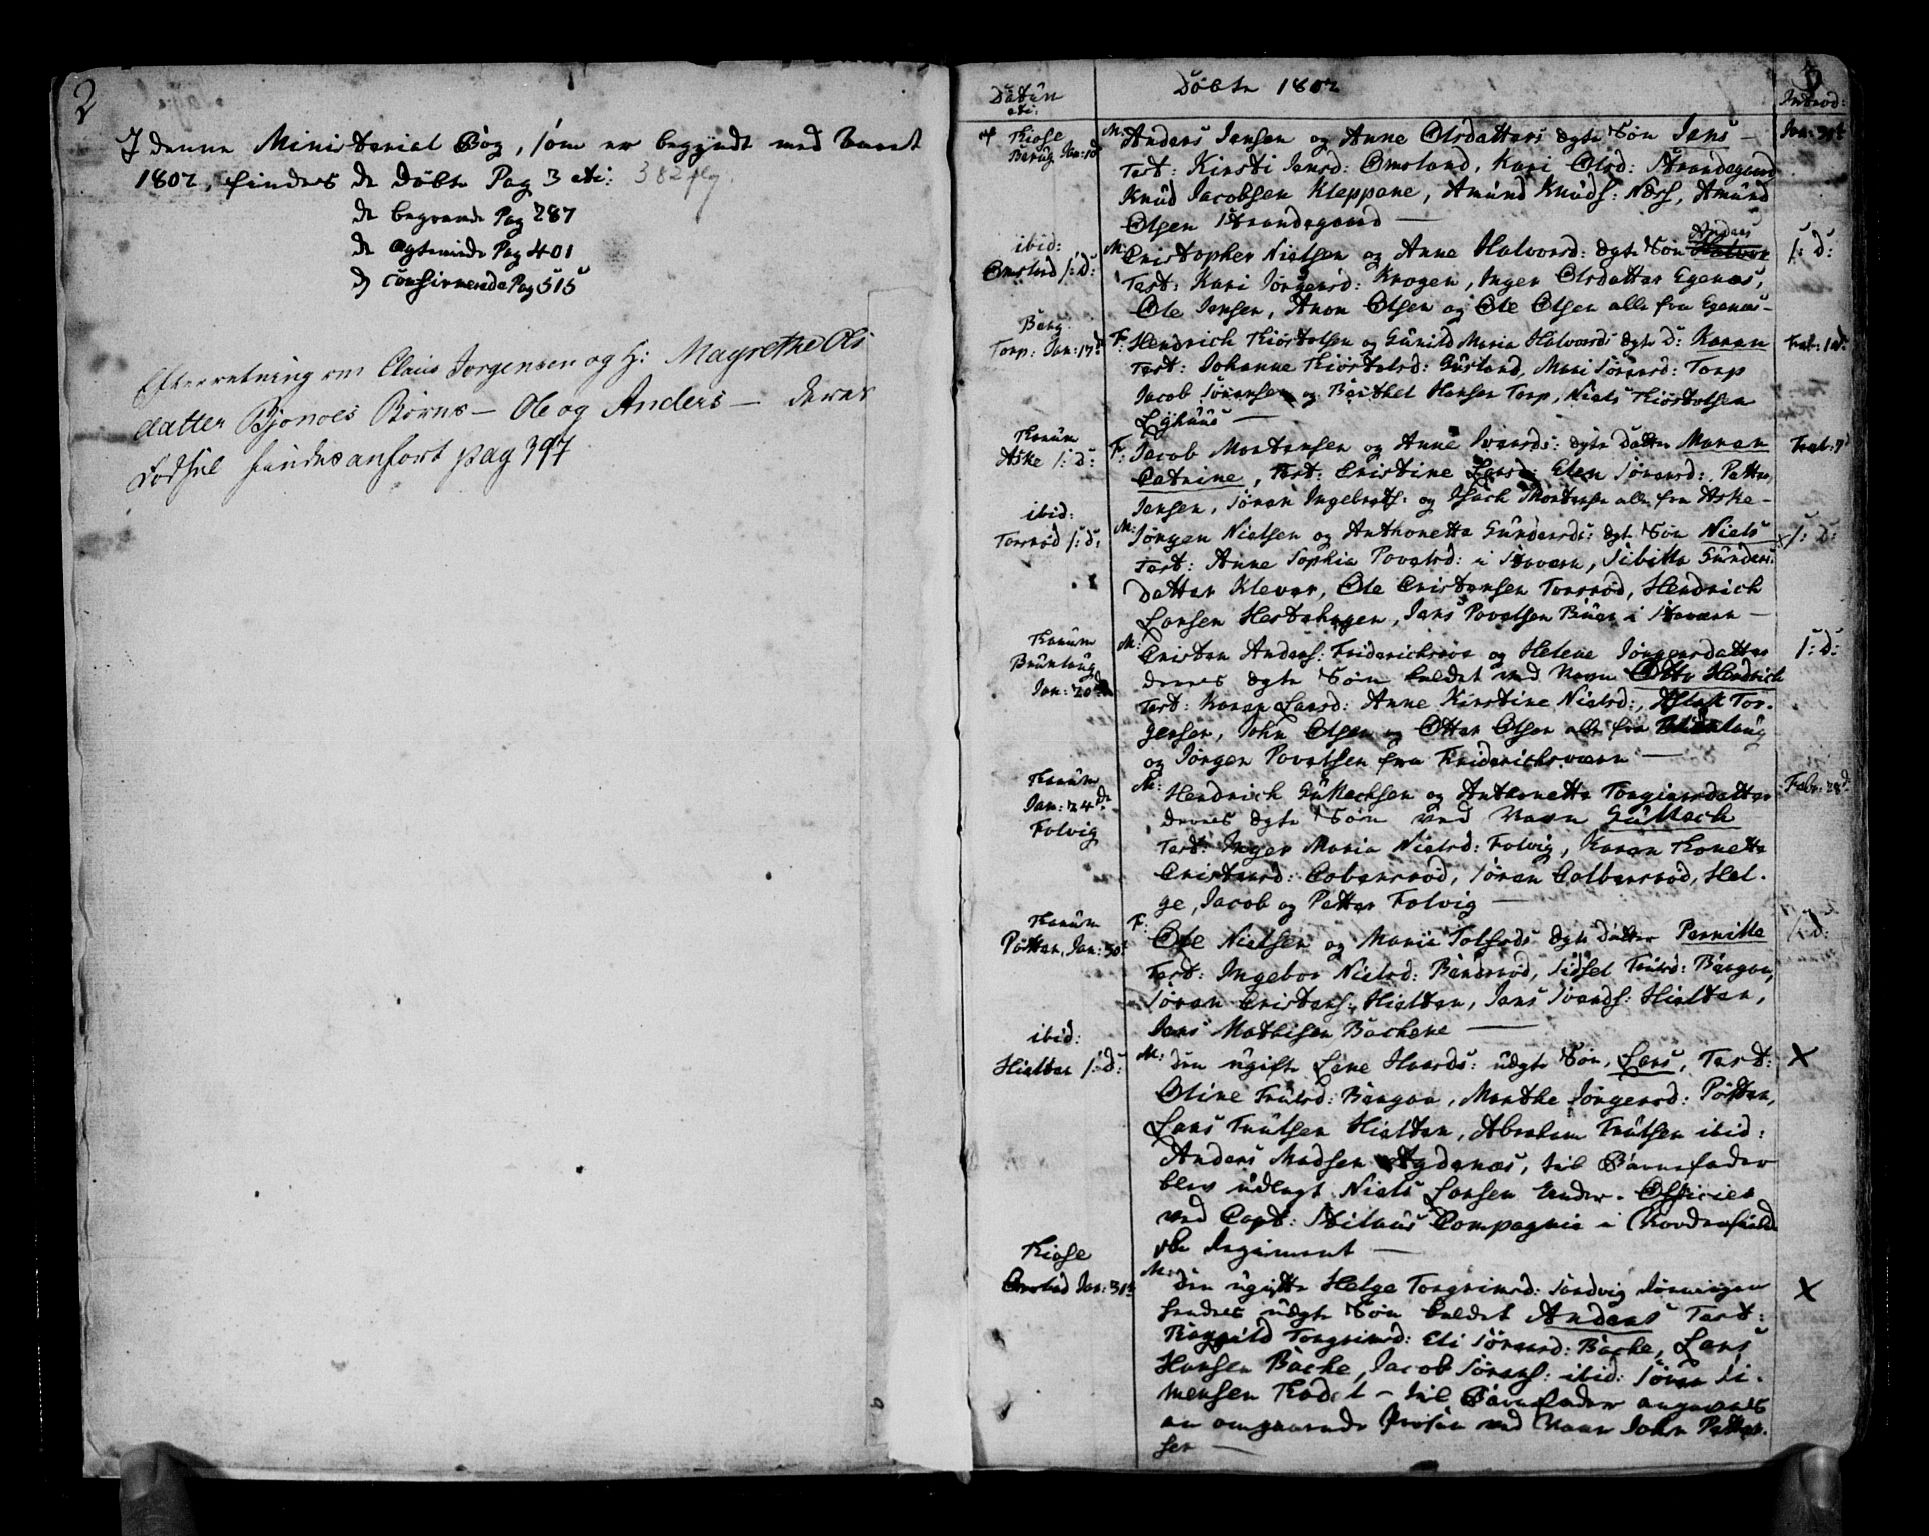 2
I denne Ministerial Bog, som er begyndt med Aaret
1802, findes de Døbte Pag 3 etc: 382 flg.
de begravede Pag 287
de Egteviede Pag 401
de Confirmerede Pag 515
Efterretning om Claus Jorgensen og H: Magrethe Ols
datter Bjonnes Børns — Ole og Anders — deres
Fødsel findes anført pag 397
3
Datum
etc:
Døbte 1802
Introd:
Kiose
Jan:1d
M: Anders Jensen og Anne Olsdatters ægte Søn Jens —
Jan: 31te
Test: Kirsti Jensd: Omsland, Kari Olsd: Strandegaard
Knud Jacobsen Kleppane, Amund Knuds: Næss, Amund
Olsen Strandegaard —
ibid:
Omslid s: d:
M: Cristopher Nielsen og Anne Halvord: ægte Søn Anders
s: d:
Test: Kari Jørgensd: Krogen, Inger Olsdatter Egenæs,
Ole Jensen, Anon Olsen og Ole Olsen alle fra Egenæs —
Berg
Torp: Jan: 17d
F: Hendrich Kiøstolsen og Gunild Maria Halvords ægte D: Karen
Test: Johanne Kiøstolsd: Gusland, Mari Sørensd: Torp
Jacob Sørensen og Berthel Hansen Torp, Niels Kiøstolsen
Lyhuus —
Tanum
Aske s: d:
F: Jacob Mortensen og Anne Ivarsd: ægte Datter Maren
Febr: 7d
Catrine, Test: Cristine Larsd: Elen Sørensd: Petter
Jensen, Søren Ingebrets: og Isach Mortensen alle fra Aske —
ibid:
Torsrød s: d:
M: Jørgen Nielsen og Anthonette Gundersds: ægte Søn Niels
s: d:
Test: Anne Sophia Povelsd: i Stavern, Sibille Gunders
datter Klever, Ole Cristensen Torsrød, Hendrich
Larsen Hestehagen, Jens Povelsen Buer i Stavern —
Tanum
Brunlaug
Jan: 20de
M: Cristen Anders: Friderichsværn og Helene Jørgensdatter
s: d:
deres ægte Søn kaldet ved Navn Otto Hendrich
Test: Karen Larsd: Anne Kirstine Nielsd:, Aslak Tor-
gersen, John Olsen og Otter Olsen alle fra Brunlaug
og Jørgen Povelsen fra Fridericksværn —
Tanum
Jan: 24de
Folvig
M: Hendrich Gullachsen og Anthonette Torgiersdatter
Febr: 28d
deres ægte Søn ved Navn Gullach
Test: Inger Maria Nielsd: Folvig, Karen Tonette
Cristensd: Cobersrød, Søren Colbersrød, Hel-
ge, Jacob og Petter Folvig —
Tanum
Pøtten, Jan: 30te
F: Ole Nielsen og Marie Tolfsds ægte Datter Pernille
s: d:
Test: Ingebor Nielsd: Bendsrød, Sidsel Trulsd: Bergan,
Søren Cristens: Hielten, Jens Ivars: Hielten,
Jens Mathisen Bachene —
ibid:
Hielten s: d:
M: den ugifte Lene Hvards: uægte Søn, Lars, Test:
X
Oline Trulsd: Bergan, Marthe Jørgensd: Pøtten,
Lars Trulsen Hielten, Abraham Trulsen ibid:
Anders Madsen Agdenæs, til Barnefader
blev udlagt Niels Larsen Under-Officier
ved Capt: Compagnie i Nordenfield
ske Regiment —
Kiose
Jan: 31te
M: den ugifte Helge Torgrimsd: Sandvig
X
hendes uægte Søn kaldet Anders Test:
Torgrimsd: Eli Sørensd: Bøche, Lars
Hansen Bøche, Jacob Sørens: ibid: Søren Si-
mensen — til Barnefader angaves
en omgaaende Person ved Navn John Petter-
sen —